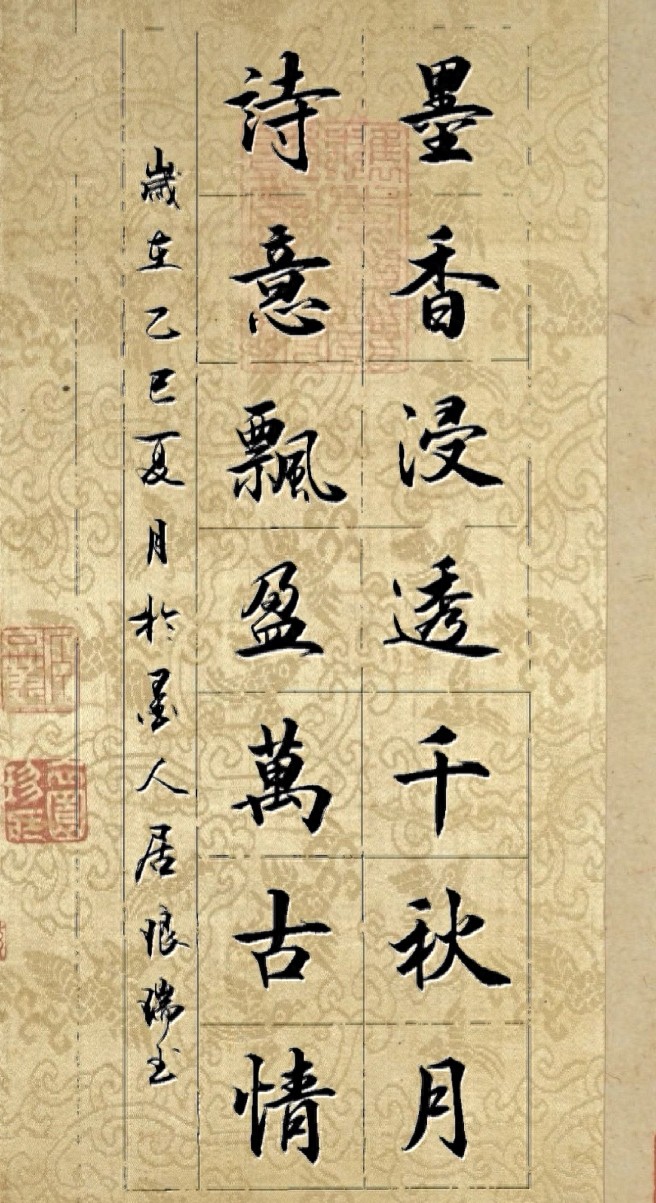 墨香浸透千秋月
詩意飄盈萬古情
歲在乙巳夏月於墨人居浪瑞玉